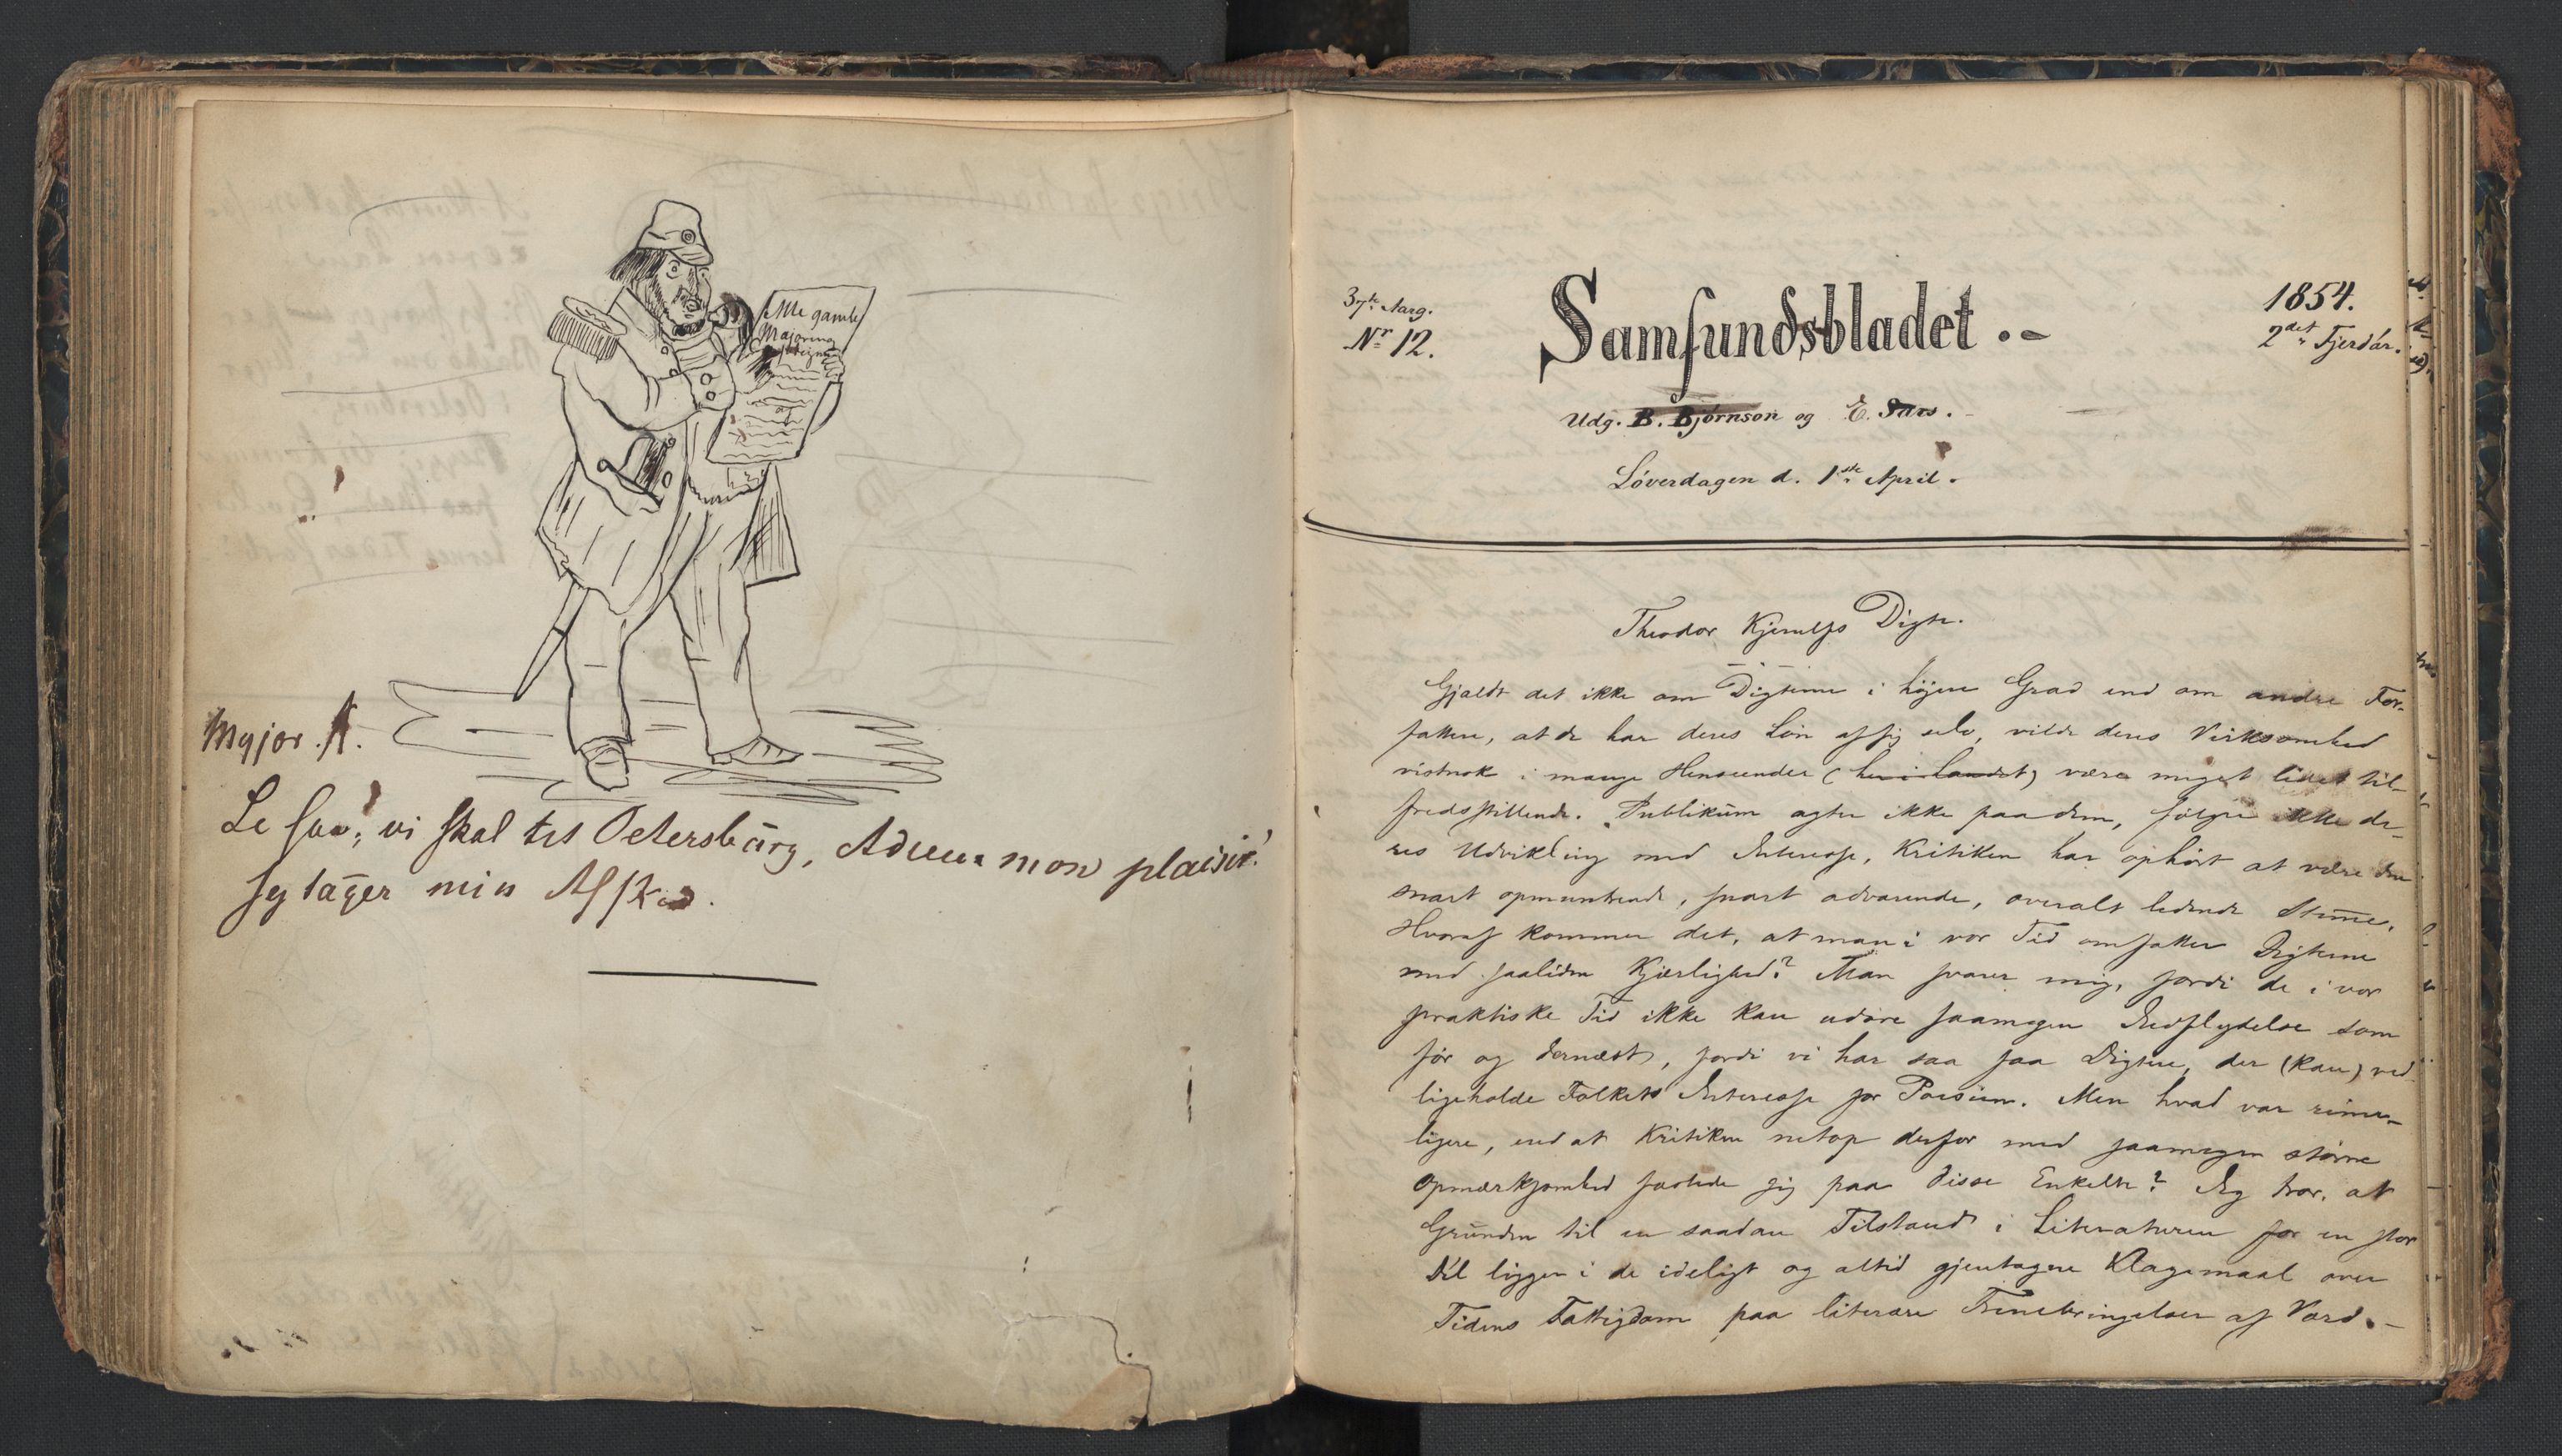 Alle gamle
Majorina
Major A.
Le saa; vi skal tit Petersbūrg, Adieu mon plaisir!
Jeg tager min Afsked.
37te Aarg.
Nr 12.
Samfundsbladet.-
1854.
2det Fjerdár.
Udg. B. Bjørnson og E. Sars.
Löverdagen d. 1ste April.
Theodor Kjerulfs Digte.
Gjaldt det ikke om Digterne i höjere Grad end om andre For-
fattere, at de har deres Lön af sig selv, vilde deres Virksomhed
vistnok i mange Henseender (her i Landet) være meget lidet til-
fredsstillende. Publikūm agter ikke paa dem, fölger ikke de-
res Udvikling med Interesse, Kritiken har ophört at være den
snart opmuntrende, snart advarende, overalt ledende Stēme.
Hvoraf kommer det, at man i vor Tid omfatter Digterne
med saaliden Kjærlighed? Man svarer mig, fordi de i vor
praktiske Tid ikke kan udöve saamegen Indflydelse som
för og dernæst, fordi vi har saa faa Digtere, der (kan) ved-
ligeholde Folkets Interesse for Poesien. Men hvad var rime-
ligere, end at Kritiken netop derfor med saamegen större
Opmærksomhed fæstede sig paa disse Enkelte? Jeg tror, at
Grūnden til en saadan Tilstand i Literaturen for en stor
Del ligger i de ideligt og altid gjentagne Klagemaal over
Tidens Fattigdom paa literære Frembringelser af Værd.-